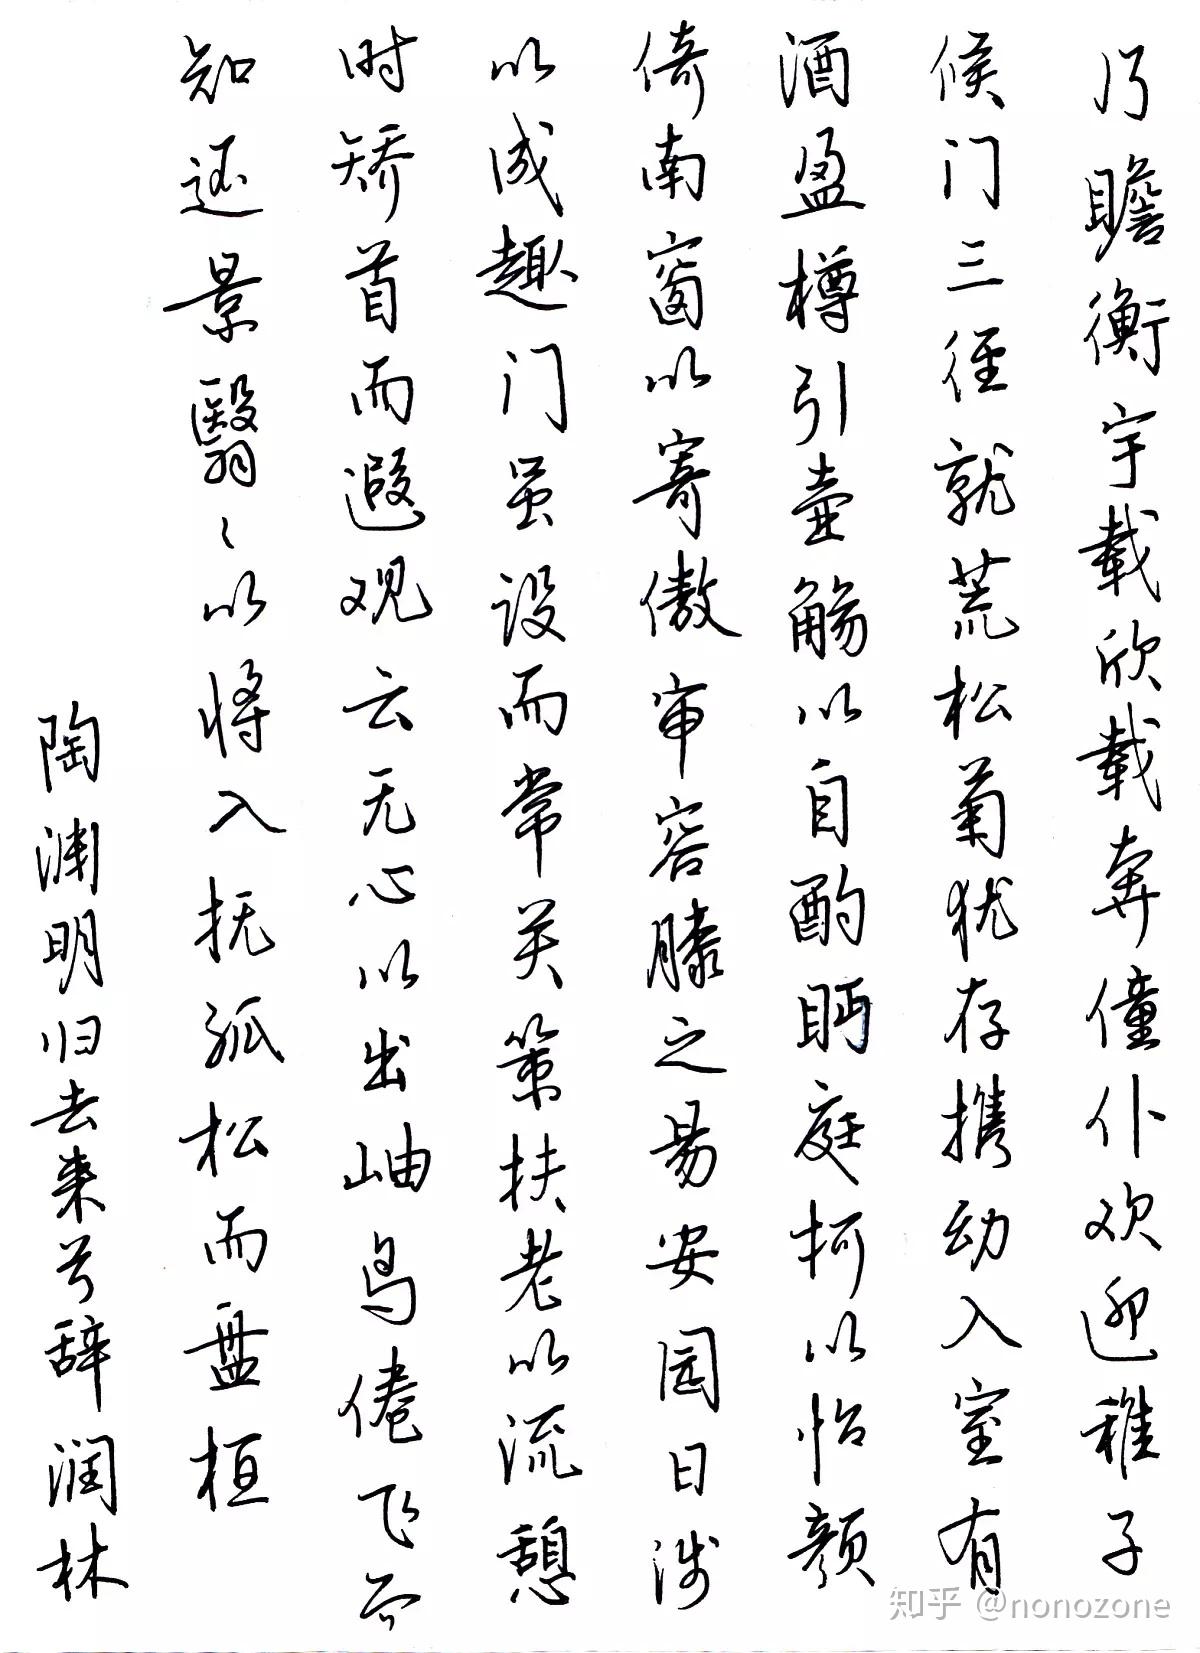 乃瞻衡宇载欣载奔僮仆欢迎稚子
候门三径就荒松菊犹存携动入室有
酒盈樽引壶觞以自酌眄庭柯以怡颜
倚南窗以寄傲审容膝之易安园日涉
以成趣门虽设而常关策扶老以流憩
时矫首而遐观云无心以出岫鸟倦飞而
知还景翳〻以将入抚孤松而盘桓
陶渊明归去来兮辞润林
知乎 @nonozone